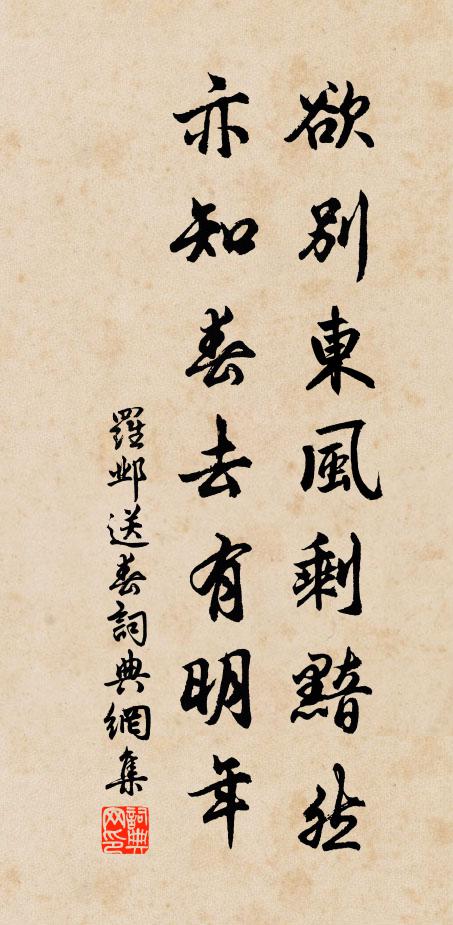 欲別東風剩黯然
亦知春去有明年
羅鄴送春詞典網集
詞典网印